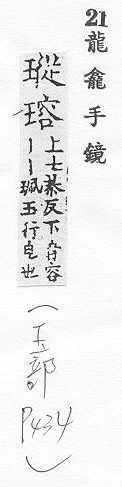 21龍龕手鏡
瑽瑢
上七恭反下音容
丨丨珮玉行皃也
(玉部
P434)